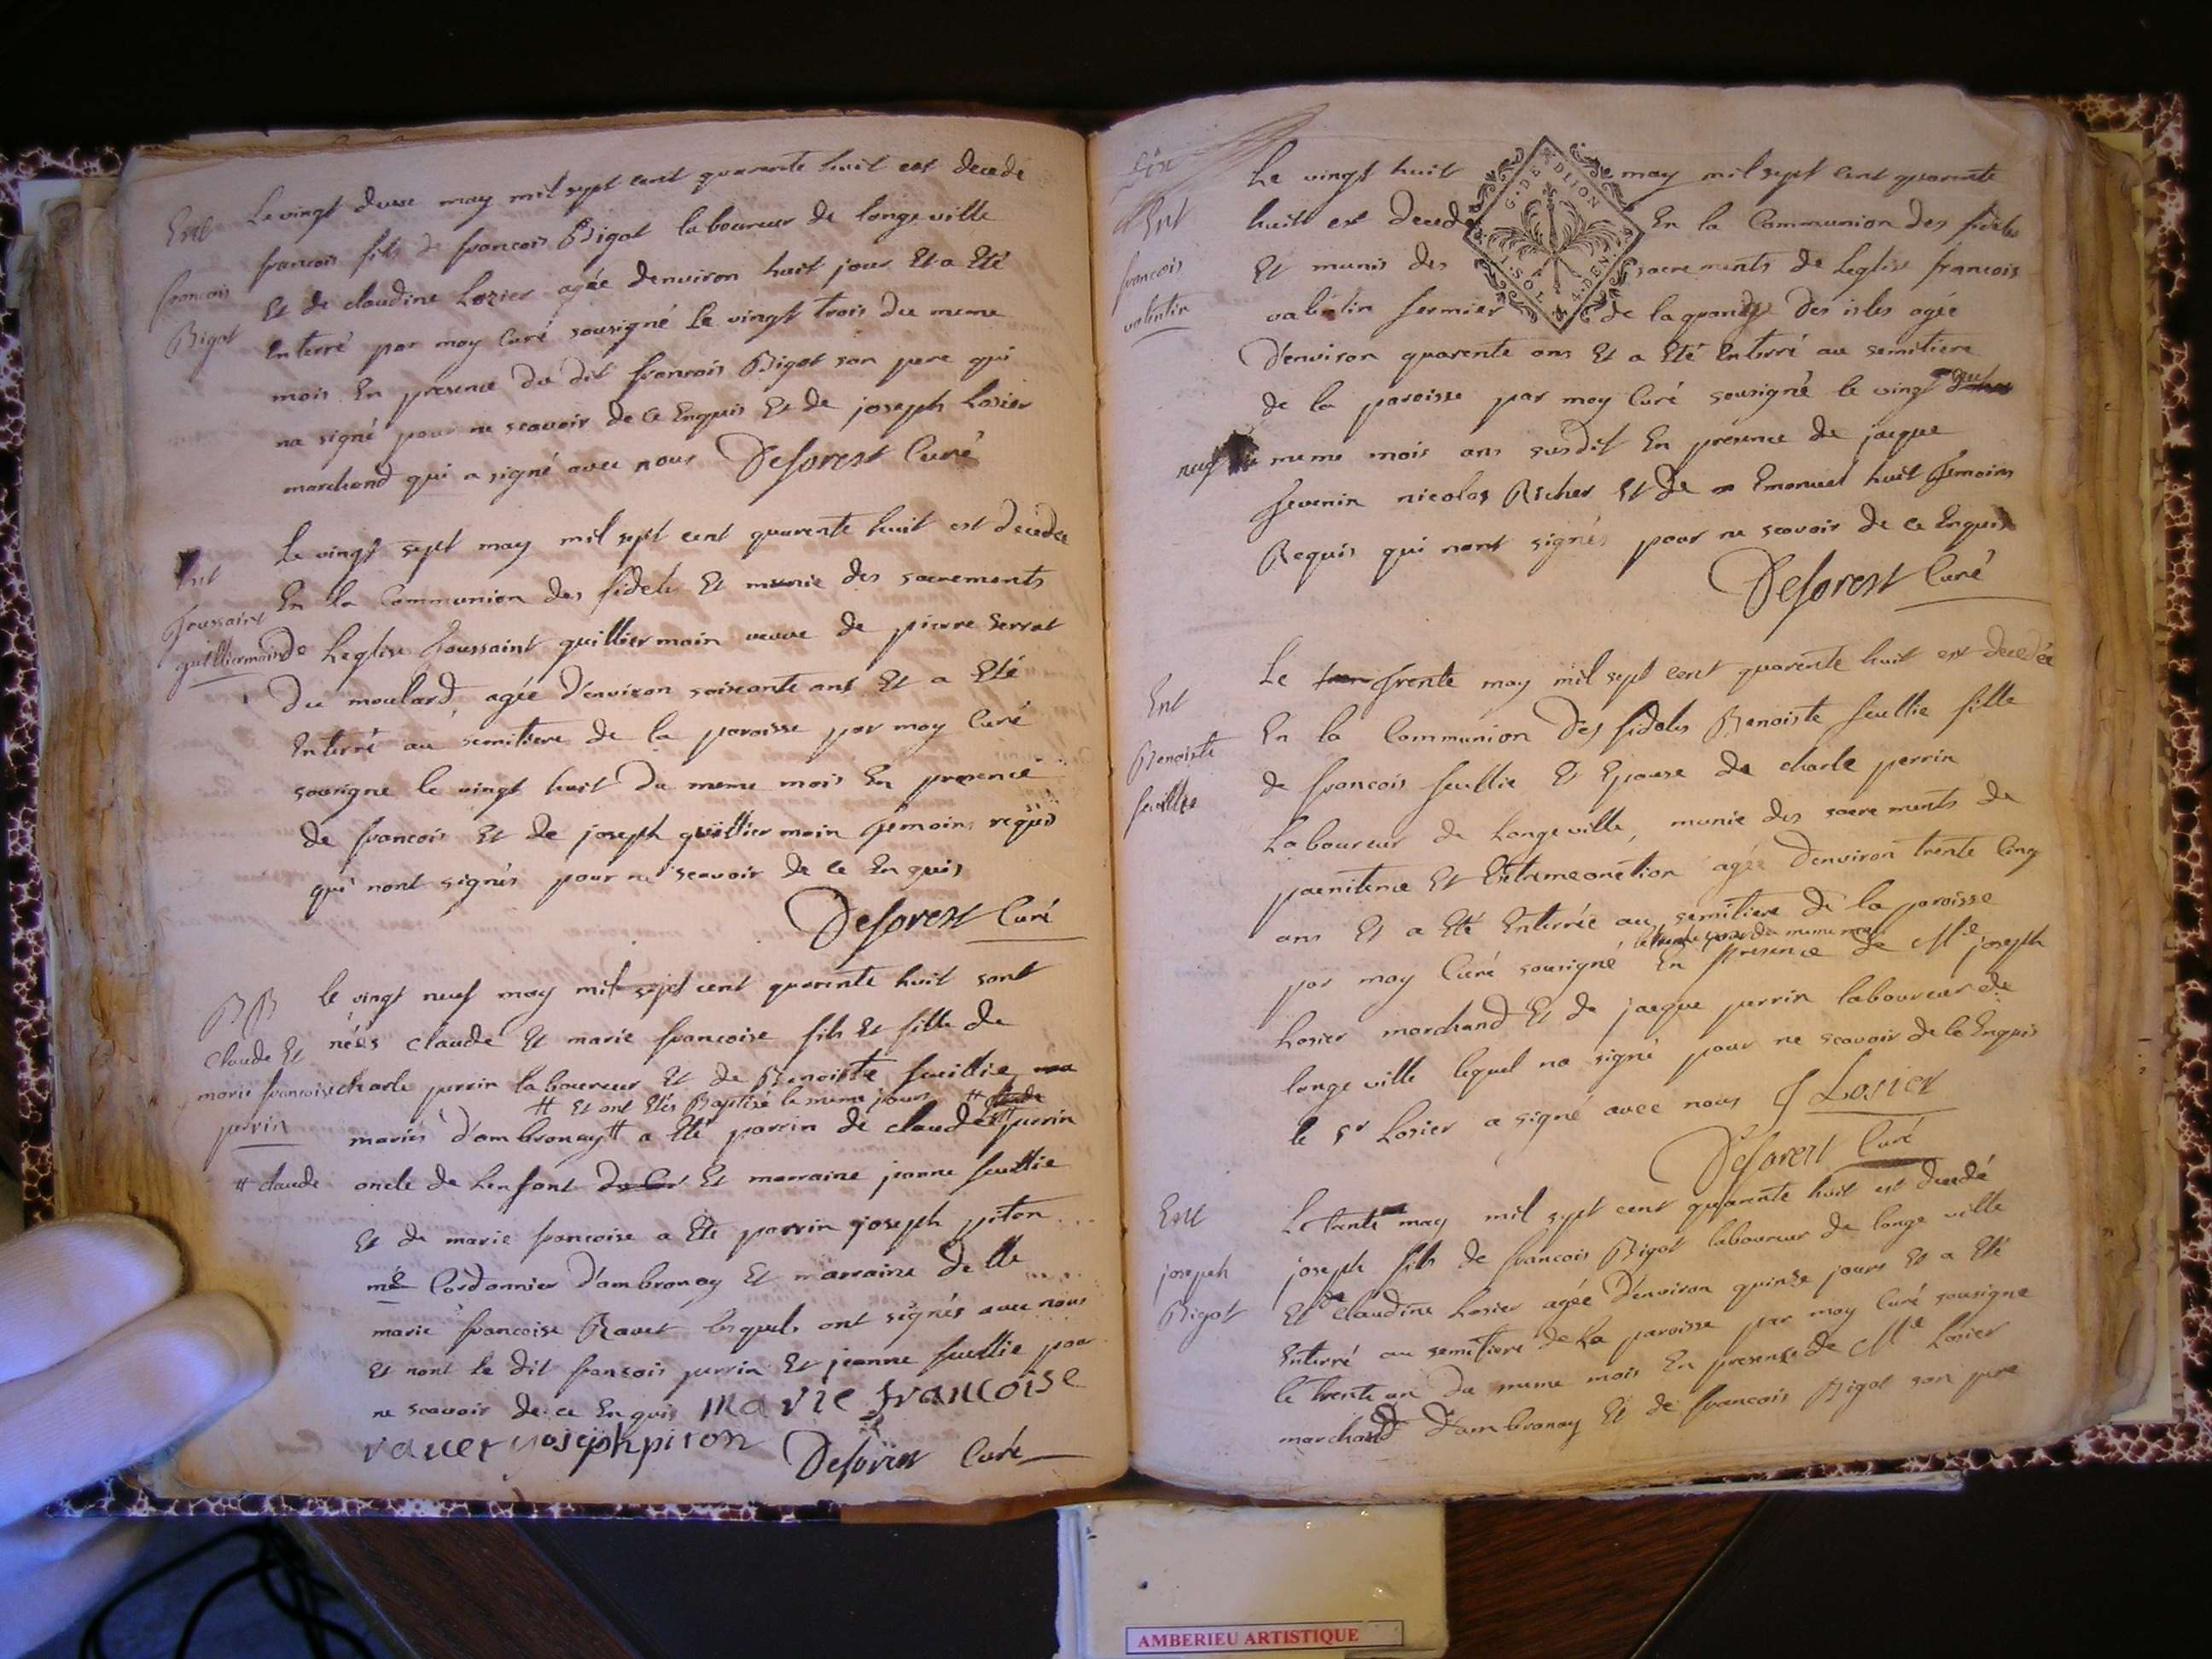 Ent
francois
Bigot
Le vingt deux may mil sept cent quarente huit est decedé
francois fils de francois Bigot laboureur de longeville
Et de claudine Losier agée denviron huit jour Et a Eté
Enterré par moy Curé sousigné Le vingt trois du meme
mois En presence du dit francois Bigot son pere qui
na signé pour ne scavoir de Ce Enquis Et de joseph Losier
marchand qui a signé avec nous Deforest Curé
Ent
Toussaint
guilliermain
Le vingt sept may mil sept cent quarente huit est decedée
En la Communion des fideles Et munie des sacrements
de Leglise Toussaint guilliermain veuve de pierre Serrat
du moulard, agée d'environ soixante ans Et a Eté
Enterré au semitiere de la paroisse par moy Curé
sousigne le vingt huit du meme mois En presence
de francois Et de joseph guilliermain Temoins requis
qui nont signés pour ne scavoir de ce Enquis
Deforest Curé
BB
claude Et
marie francoise
perrin
# claude
le vingt neuf may mil sept cent quarente huit sont
néés claude Et marie francoise fils Et fille de
charle perrin laboureur Et de Benoiste feuillie
# Et ont Etés Baptisé le meme jour #
mariés d'ambronay # a Eté parrin de claude # perrin
oncle de Lenfant Et marraine jeanne feullie
Et de marie francoise a Eté parrin joseph piton
mé Cordonnier d'ambronay Et marraine delle
marie francoise Ravet lesquels ont signés avec nous
Et nont le dit fransois perrin Et jeanne feullie pour
ne scavoir de ce Enquis marie francoise
ravet yosephpiton Deforest Curé
Six
Ent
francois
valintin
G. DE DIJON
1. SOL 4. DEN.
Le vingt huit may mil sept cent quarente
huit est decedé En la Communion des fideles
Et munis des sacrements de Leglise francois
valintin fermier de la grange des isles agée
d'environ quarente ans Et a Eté Enterré au semitiere
de la paroisse par moy Curé sousigné le vingt
neuf meme mois ans susdit En présence de jacque
Tevenin nicolas Richer Et de Emanuel huit Temoins
Requis qui nont signés pour ne scavoir de ce Enquis
Deforest Curé
Ent
Benoiste
feuillie
Le Trente may mil sept cent quarente huit est decedée
En la Communion des fideles Benoiste feullie fille
de francois feullie Et Epouse de charle perrin
Laboureur de Longeville, munie des sacrements de
paenitence Et Extremeonction agée d'environ trente Cinq
ans Et a Eté Enterrée au semitiere de la paroisse
du meme mois
par moy Curé sousigné En presence de Me joseph
Losier marchand Et de jacque perrin laboureur de
longeville lequel na signé pour ne scavoir de Ce Enquis
le Sr Losier a signé avec nous J Losier
Deforest Curé
Ent
joseph
Bigot
Le trente may mil sept cent quarente huit est decedé
joseph fils de francois Bigot laboureur de longe ville
Et de claudine Losier agée d'environ quinse jours Et a Eté
Enterré au semitiere de La paroisse par moy Curé sousigne
le trente un du meme mois En presense de Me Losier
marchand d'ambronay Et de francois Bigot son pere
AMBERIEU ARTISTIQUE